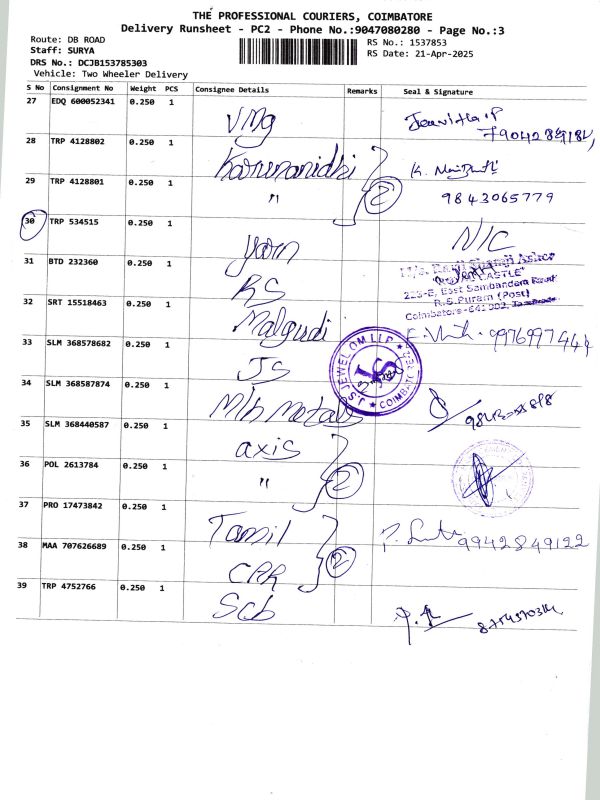 THE PROFESSIONAL COURIERS, COIMBATORE
Delivery Runsheet - PC2 - Phone No.:9047080280 - Page No.:3
Route: DB ROAD
RS No.: 1537853
Staff: SURYA
RS Date: 21-Apr-2025
DRS No.: DCJB153785303
Vehicle: Two Wheeler Delivery
S No Consignment No Weight PCS Consignee Details Remarks Seal & Signature
27 EDQ 600052341 0.250 1 VMg
28 TRP 4128802 0.250 1 Karunanidhi
29 TRP 4128801 0.250 1 " 2 9843065779
30 TRP 534515 0.250 1 yarn N/C
31 BTD 232360 0.250 1 RS
223-E, East Sambandam Road
R.S.Puram (Post)
Coimbatore-641 002.
32 SRT 15518463 0.250 1 Malgudi
33 SLM 368578682 0.250 1 JS
J.S. JEWEL OM LLP
34 SLM 368587874 0.250 1 M/n Metals
35 SLM 368440587 0.250 1 axis
36 POL 2613784 0.250 1 " 2
37 PRO 17473842 0.250 1 Tamil 9942849122
38 MAA 707626689 0.250 1 CPR 2
39 TRP 4752766 0.250 1 Scb